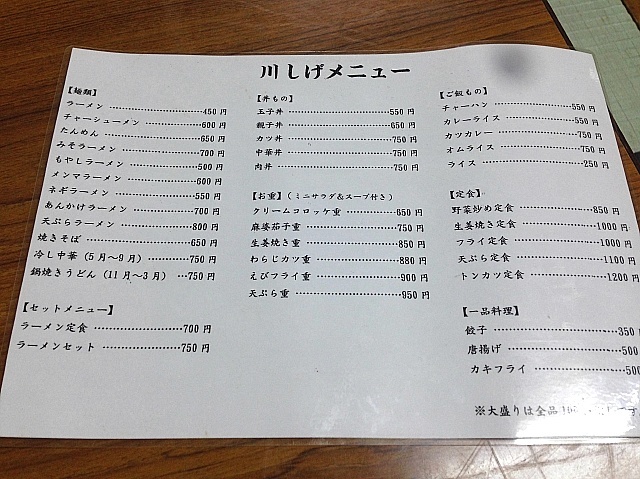 川しげメニュー
【麺類】
ラーメン ………………………450 円
チャーシューメン ……………600 円
たんめん ………………………650 円
みそラーメン …………………700 円
もやしラーメン ………………500 円
メンマラーメン ………………600 円
ネギラーメン …………………550 円
あんかけラーメン ……………700 円
天ぷらラーメン ………………800 円
焼きそば ………………………650 円
冷し中華（5月～9月） ………750 円
鍋焼きうどん（11月～3月） …750 円
【セットメニュー】
ラーメン定食 …………………700 円
ラーメンセット ………………750 円
【丼もの】
玉子丼 …………………………550 円
親子丼 …………………………650 円
カツ丼 …………………………750 円
中華丼 …………………………750 円
肉丼 ……………………………750 円
【お重】（ミニサラダ&スープ付き）
クリームコロッケ重 …………650 円
麻婆茄子重 ……………………750 円
生姜焼き重 ……………………850 円
わらじカツ重 …………………880 円
えびフライ重 …………………900 円
天ぷら重 ………………………950 円
【ご飯もの】
チャーハン ……………………550 円
カレーライス …………………550 円
カツカレー ……………………750 円
オムライス ……………………750 円
ライス …………………………250 円
【定食】
野菜炒め定食 …………………850 円
生姜焼き定食 …………………1000 円
フライ定食 ……………………1000 円
天ぷら定食 ……………………1100 円
トンカツ定食 …………………1200 円
【一品料理】
餃子 ……………………………350
唐揚げ …………………………500
カキフライ ……………………500
※大盛りは全品